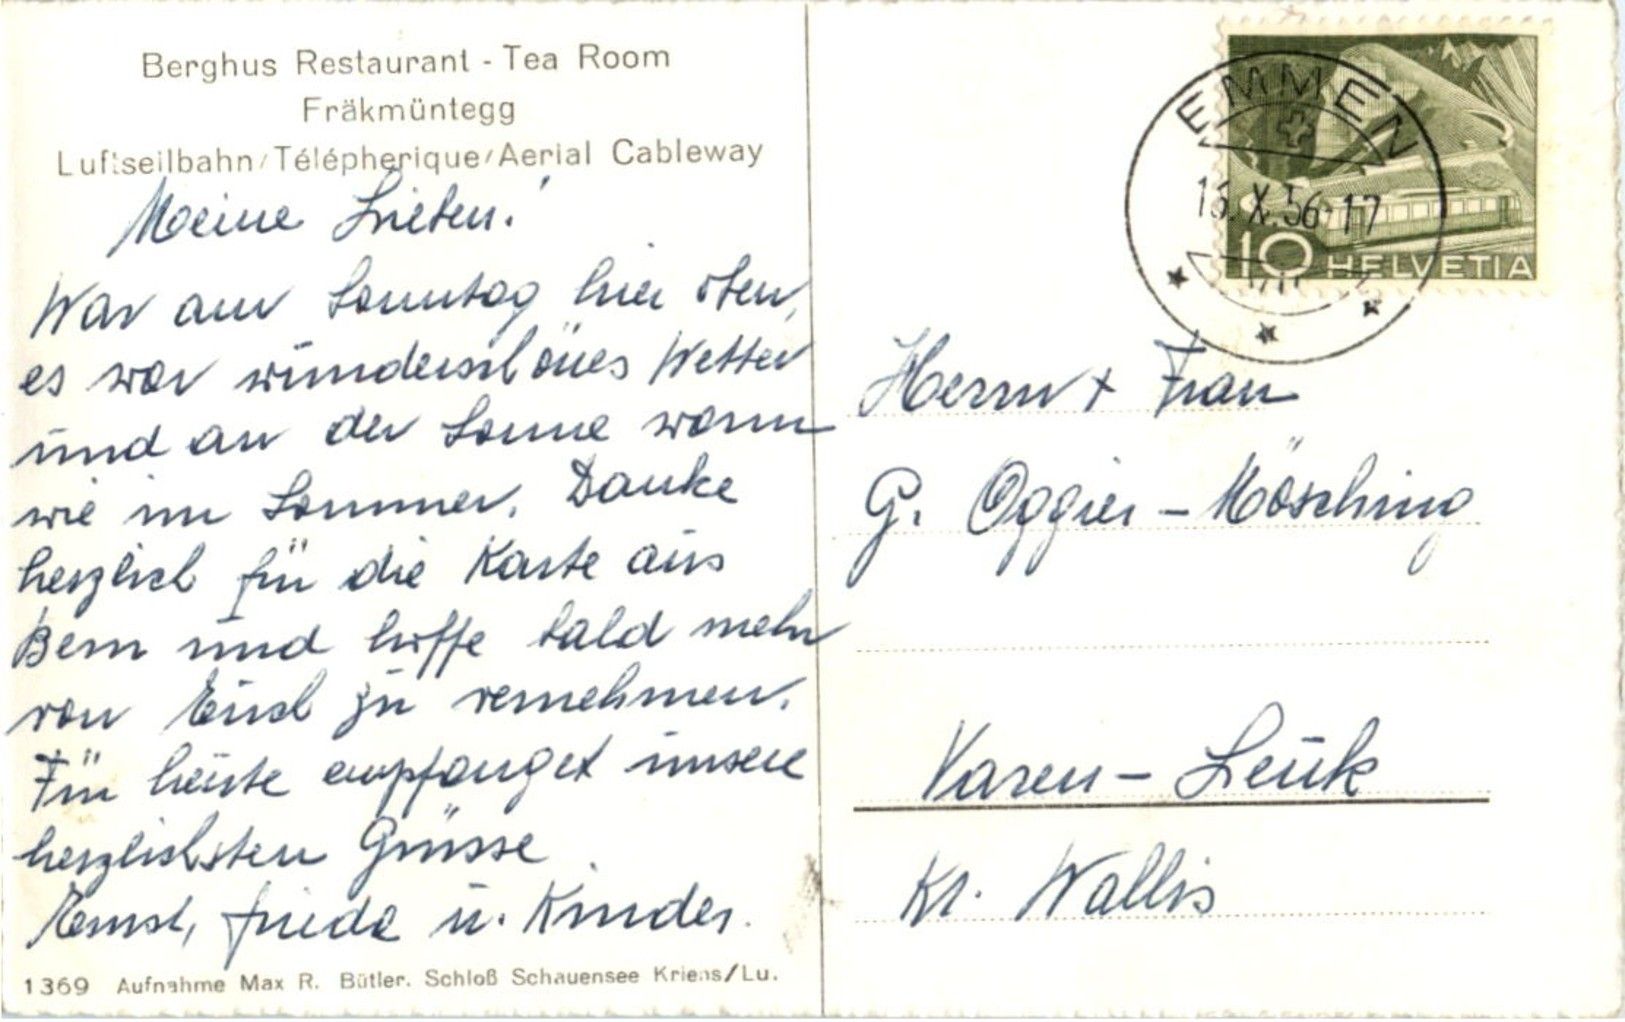 Berghus Restaurant - Tea Room
Fräkmüntegg
Luftseilbahn/Télépherique/Aerial Cableway
Meine Lieben!
War am Sonntag hier oben,
es war wunderschönes Wetter
und an der Sonne warm
wie im Sommer. Danke
herzlich für die Karte aus
Bern und hoffe bald mehr
von Euch zu vernehmen.
Für heute empfanget unsere
herzlichsten Grüsse
Ernst, Frieda u. Kinder.
1369 Aufnahme Max R. Bütler. Schloß Schauensee Kriens/Lu.
EMMEN
X.56-17
10 HELVETIA
Herrn + Frau
G. Oggier - Mösching
Varen - Leuk
Kt. Wallis